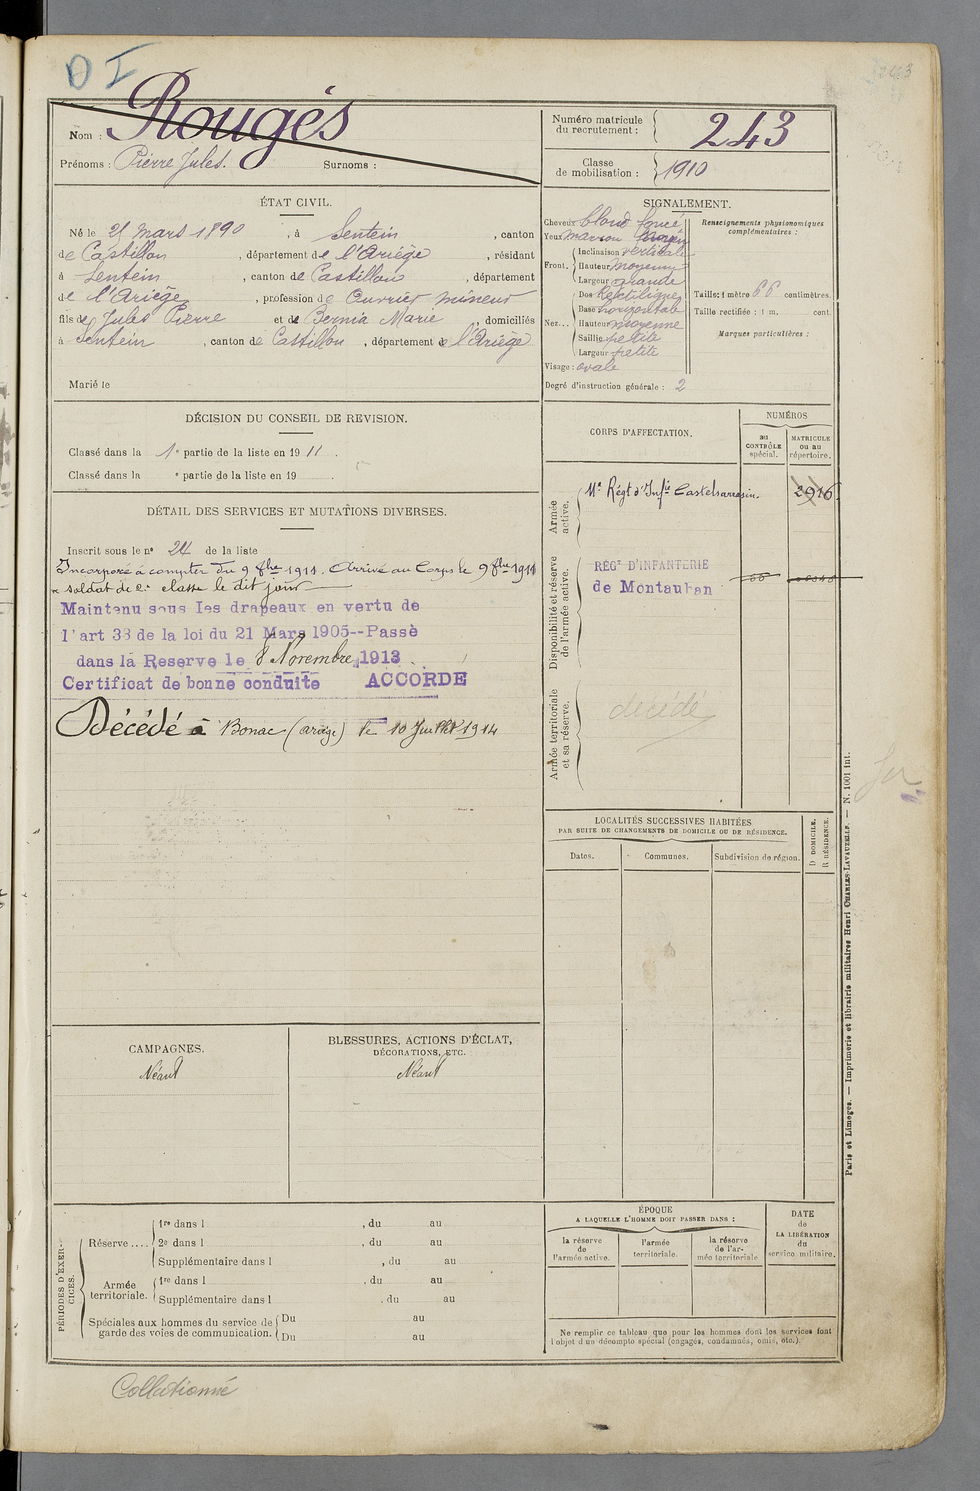 D I
243
Nom : Rougés
Prénoms : Pierre Jules. Surnoms :
Numéro matricule du recrutement : 243
Classe de mobilisation : 1910
ÉTAT CIVIL.
Né le 21 mars 1890, à Sentein, canton
de Castillon, département de l'Ariège, résidant
à Sentein, canton de Castillon, département
de l'Ariège, profession de Ouvrier mineur
fils de Jules Pierre et de Bernia Marie, domiciliés
à Sentein, canton de Castillon, département de l'Ariège
Marié le
SIGNALEMENT.
Cheveux blond foncé
Yeux marron
Front. Inclinaison verticale
Hauteur moyenne
Largeur grande
Nez... Dos Rectiligne
Base horizontale
Hauteur moyenne
Saillie petite
Largeur petite
Visage : ovale
Degré d'instruction générale : 2
Renseignements physionomiques complémentaires :
Taille : 1 mètre 66 centimètres.
Taille rectifiée : 1 m. cent.
Marques particulières :
DÉCISION DU CONSEIL DE REVISION.
Classé dans la 1e partie de la liste en 1911.
Classé dans la e partie de la liste en 19 .
DÉTAIL DES SERVICES ET MUTATIONS DIVERSES.
Inscrit sous le n° 24 de la liste
Incorporé à compter du 9 8bre 1911. Arrivé au Corps le 9 8bre 1911
soldat de 2e classe le dit jour
Maintenu sous les drapeaux en vertu de
l'art 33 de la loi du 21 Mars 1905--Passé
dans la Reserve le 8 Novembre 1913.
Certificat de bonne conduite ACCORDÉ
Décédé à Bonac (ariège) le 10 Juillet 1914
CORPS D'AFFECTATION.
NUMÉROS
au CONTRÔLE spécial.
MATRICULE ou au répertoire.
Armée active.
11e Régt d'Infie Castelsarrasin. 2916
Disponibilité et réserve de l'armée active.
RÉGt D'INFANTERIE
de Montauban
Armée territoriale et sa réserve.
décédé
LOCALITÉS SUCCESSIVES HABITÉES
PAR SUITE DE CHANGEMENTS DE DOMICILE OU DE RÉSIDENCE.
Dates. Communes. Subdivision de région. D DOMICILE. R RÉSIDENCE.
CAMPAGNES.
Néant
BLESSURES, ACTIONS D'ÉCLAT,
DÉCORATIONS, ETC.
Néant
PÉRIODES D'EXERCICES.
Réserve .... 1re dans l , du au
2e dans l , du au
Supplémentaire dans l , du au
Armée territoriale. 1re dans l , du au
Supplémentaire dans l , du au
Spéciales aux hommes du service de garde des voies de communication. Du au
Du au
ÉPOQUE
A LAQUELLE L'HOMME DOIT PASSER DANS :
la réserve de l'armée active.
l'armée territoriale.
la réserve de l'armée territoriale
DATE de LA LIBÉRATION du service militaire.
Ne remplir ce tableau que pour les hommes dont les services font
l'objet d'un décompte spécial (engagés, condamnés, omis, etc.).
Paris et Limoges. — Imprimerie et librairie militaires Henri CHARLES-LAVAUZELLE. — N. 1001 int.
Collationné